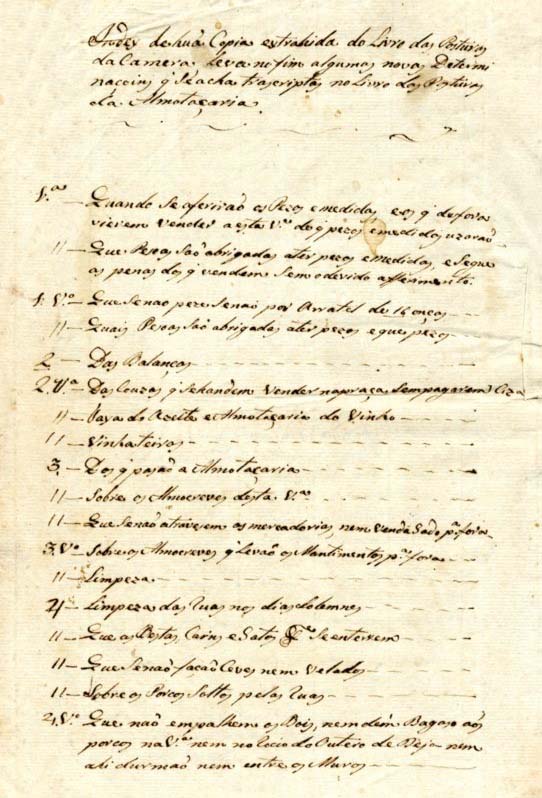 Index de huã Copia extrahida do Livro das Posturas
da Camera. Leva no fim algumas novas Determi
nacoins q̃ Se acha trascriptas no Livro das Posturas
da Almotaçaria.
1.ª — Quando Se aferiraõ os Pezos e medidas, e os q̃ de fora
vierem vender a esta V.ª de q̃ pezos e medidas uzaraõ
11 — Que Pesoas Saõ abrigadas a ter pezos e medidas, e Segue
as penas dos q̃ vendem Sem o devido afferimento.
1. Vº — Que Senaõ peze Senaõ por Arratel de 16 onças
11 — Quais Pesoas Saõ abrigadas a ter pezos e que pezos
2 — Das Balanças
2. Vª — Das Couzas q̃ Se handem Vender na praça Sem pagarem Ciza
11 — Taxa do Azeite e Almotaçaria do Vinho
11 — Vinhateiros
3. — Dos q̃ pasaõ a Almotaçaria
11 — Sobre os Almocreves desta V.ª
11 — Que Senaõ atravesem as mercadorias, nem Venda Sado p.ª fora
3. Vº — Sobre os Almocreves q̃ Levaõ os Mantimentos p.ª fora
11 — Limpeza
4 — Limpeza das Ruas nos dias Solemnes
11 — Que as Bestas, Cains e Gatos Se enterrem
11 — Que Senaõ façaõ Ceves nem Velados
11 — Sobre os Porcos Soltos pelas Ruas
4. Vº — Que naõ empalhem os Bois, nem dém Bagaso aos
porcos na V.ª nem no Rocio do Outero de Beja nem
ali durmaõ nem entre os Muros